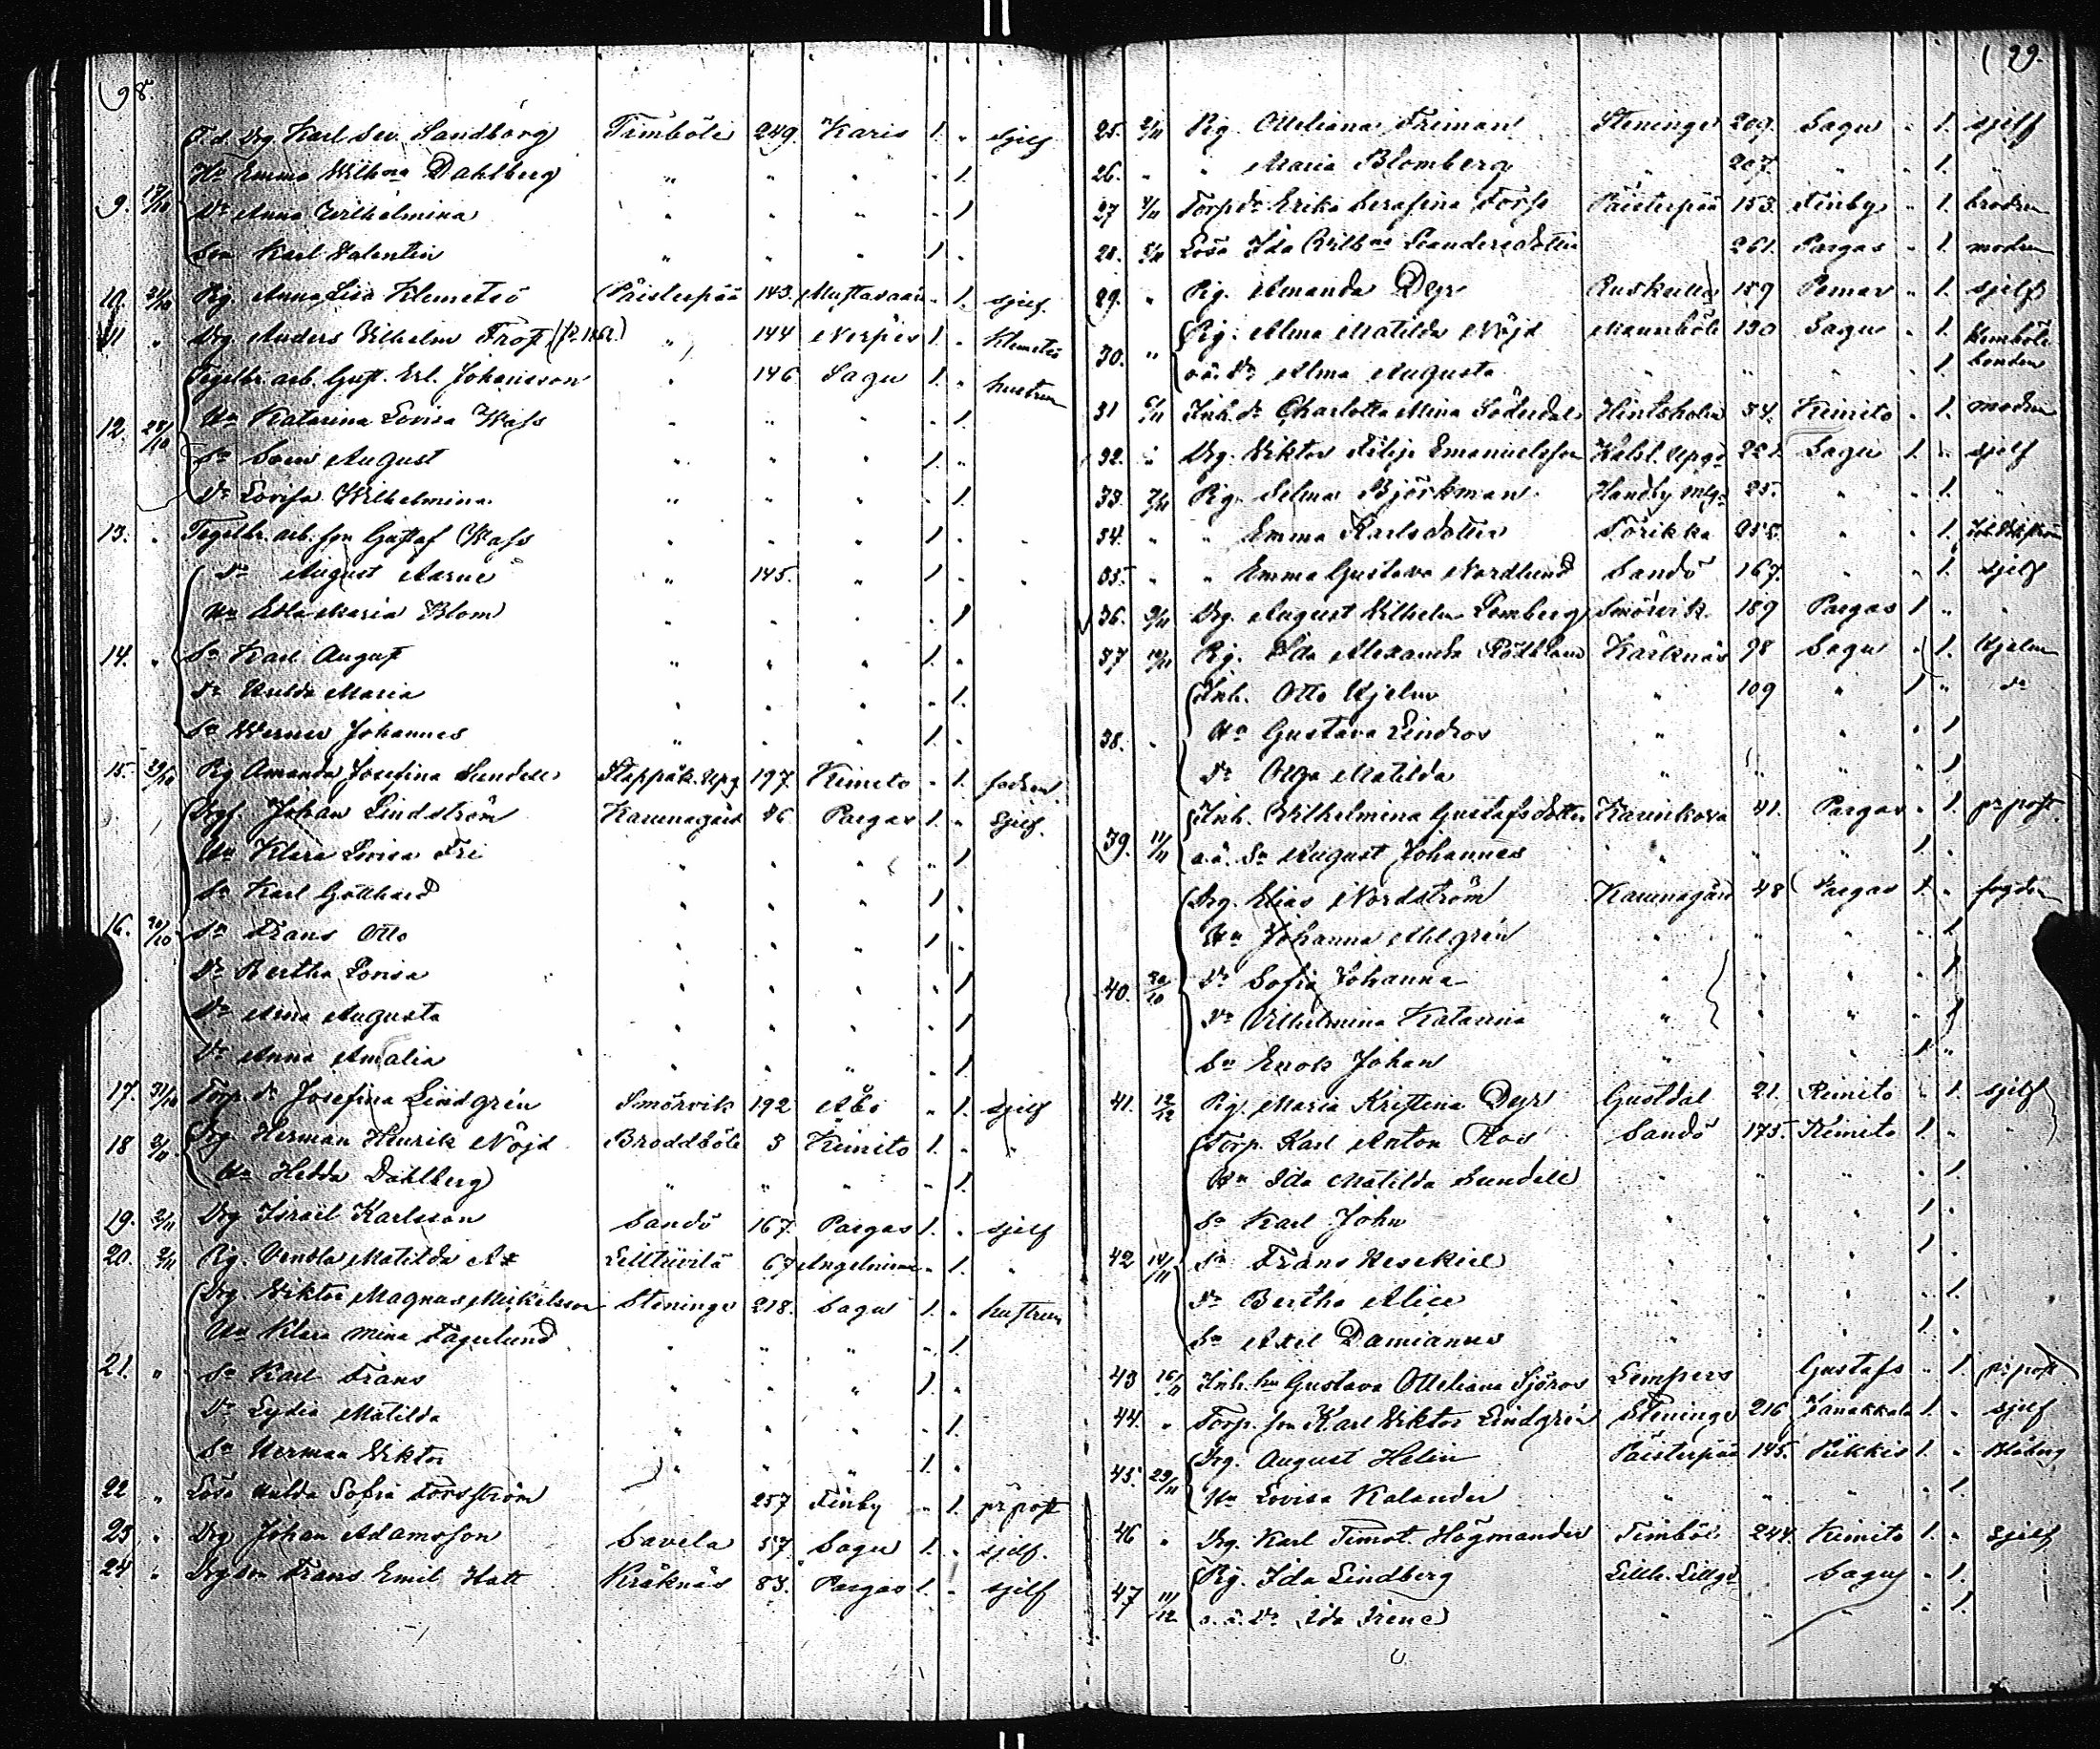 98.
F.d. Drg. Karl Sev. Sandborg Timböle 249. Karis 1. " sjelf
Hu Emma Vilh:na Dahlberg " " " " 1.
9. 17/10 Dr Anna Wilhelmina " " " " 1
Son Karl Valentin " " " 1 "
10. 21/10 Pig. Anna Lisa Klemetsö Päisterpää 143. Mustasaari " 1. sjelf.
11 " Drg. Anders Vilhelm Trop " 144 Nerpes 1. " Klemetsö
Tegelbr. arb. Gust. Erl. Johansson " 146 Sagu 1. " hustrun
12. 28/10 Hu Katarina Lovisa Wass " " " " 1.
Sn Sven August " " " 1. "
Dr Lovisa Wilhelmina " " " " 1.
13. " Tegelbr. arb. son Gustaf Wass " " " 1 " "
Dr August Aarne " 145. " 1 " "
Hu Edla Maria Blom " " " " 1
14. " Sn Karl August " " " 1. "
Dr Hulda Maria " " " " 1.
Sn Werner Johannes " " " 1. "
15. 29/10 Pig Amanda Josefina Sundell Stappäk. Upg. 197. Kimito " 1. fadren
Drg. Johan Lindström Karunagård 46 Pargas 1. " sjelf.
Hu Klara Lovisa Fri " " " " 1
Sn Karl Gotthard " " " 1 "
16. 30/10 Sn Frans Otto " " " 1 "
Dr Bertha Lovisa " " " " 1
Dr Aina Augusta " " " " 1
Dr Anna Amalia " " " " 1
17. 31/10 Torp. dr Josefina Lindgrén Smörvik 192 Åbo " 1. sjelf
18 2/11 Drg Herman Henrik Nöjd Broddböle 3 Kimito 1. " "
Hu Hedda Dahlberg " " " " 1.
19. 2/11 Drg Israel Karlsson Sandö 167. Pargas 1. " sjelf
20. 2/11 Pig. Vendla Matilda Ax Lilltüvilä 67 Angelniemi " 1. "
Drg. Viktor Magnus Mickelsson Steninge 218. Sagu 1. " hustrun
Hu Klara Mina Fagerlund " " " " 1.
21. " Sn Karl Frans " " " 1. "
Dr Lydia Matilda " " " " 1.
Sn Herman Viktor " " " 1. "
22 " Lösa Hulda Sofia Forsström 257 Finby " 1. pr post
23 " Drg Johan Adamsson Savela 57. Sagu 1. " sjelf.
24 " Drg son Frans Emil Hatt Kråknäs 83. Pargas 1. " sjelf
99.
25. 2/11 Pig. Otteliana Friman Steninge 209. Sagu " 1. sjelf
26. " " Maria Blomberg " 207. " " 1. "
27 4/11 Torp dr Erika Serafina Torp Päisterpää 153. Finby " 1. brodren
28. 5/11 Lösa Ida Vilh:na Leandersdotter 261. Pargas " 1. modren
29. " Pig. Amanda Dyr Ruskulla 159 Pemar " 1. sjelf
30. " Pig. Alma Matilda Nöjd Mannböle 130 Sagu " 1. Kemböle
o.ä. Dr Alma Augusta " " " " 1 bonden
31 6/11 Inh. dr Charlotta Mina Söderdal Hintsholm 54. Kimito " 1. modren
32. " Drg. Viktor Filip Emanuelsson Kalsl. Upg. 221. Sagu 1 " sjelf
33. 7/11 Pig. Selma Björkman Handby Mlg. 25. " " 1. "
34. " " Emma Karlsdotter Sörikka 255. " " 1.
35. " " Emma Gustava Nordlund Sandö 167. " " 1. sjelf
36. 9/11 Drg. August Vilhelm Lemberg Smörvik 189 Pargas 1 " "
37 10/11 Pig. Ida Alexandra Rothland Kårknäs 98 Sagu " 1. Hjelm
Inh. Otto Hjelm " 109 " 1 " dr
38. " Hu Gustava Lindros " " " " 1
Dr Olga Matilda " " " " 1
39. 11/11 Inh. Wilhelmina Gustafsdotter Karinkova 41. Pargas " 1. pr post.
o.ä. Sn August Johannes " " " 1. "
Drg. Elias Nordström Karunagård 48 Pargas 1. " fogden
Hu Johanna Ahlgrén " " " " 1
40. 30/10 Dr Sofia Johanna " " " " 1
Dr Vilhelmina Katarina " " " " 1
Sn Enok Johan " " " 1 "
41. 12/12 Pig. Maria Kristina Dyr Gustdal 21. Kimito " 1. sjelf
Torp. Karl Anton Ros Sandö 175. Kimito 1. " "
Hu Ida Matilda Sundell " " " " 1.
Sn Karl John " " " 1. "
42 14/11 Sn Frans Hesekiel " " " 1 "
Dr Bertha Alice " " " " 1.
Sn Axel Damianus " " " 1. "
43 16/11 Inh. hu Gustava Otteliana Sjöros Sempers Gustafs " 1. pr post.
44. " Torp. son Karl Viktor Lindgrén Steninge 216 Janakkala 1. " sjelf
45. 29/11 Drg. August Helin Päisterpää 145. Pikkis 1. " Blåberg
Hu Lovisa Kalander " " " " 1.
46 " Drg. Karl Timot. Högmander Timböle 244. Kimito 1. " sjelf
47 11/12 Pig. Ida Lindberg Lillh. Lillg. Sagu " 1.
o.ä. Dr Ida Irene " " " " 1.